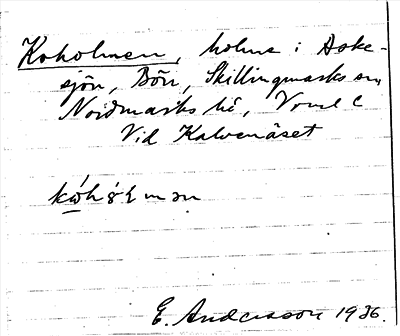 Koholmen, holme i Aske-
sjön, Bön, Skillingmarks sn,
Nordmarks hd, Vrml
Vid Kalvenäset
E. Andersson 1936.